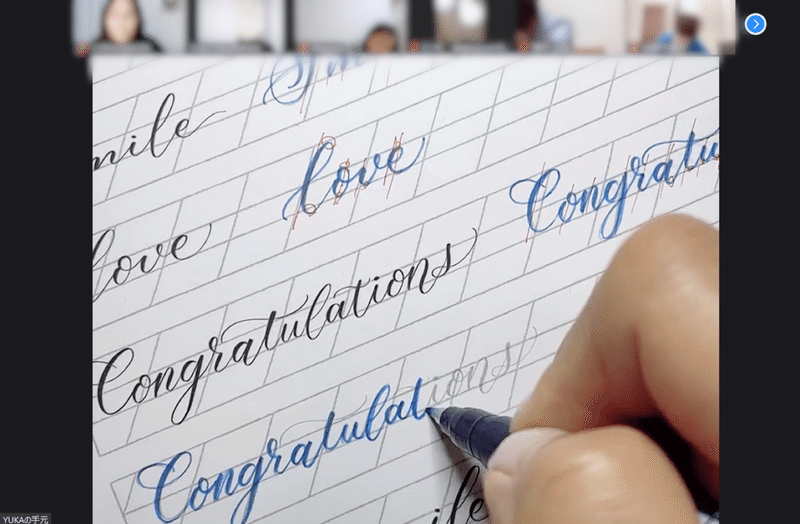 Sm
mile
love
Congratu
love
Congratulations
Congratulations
ile
YUKAの手元